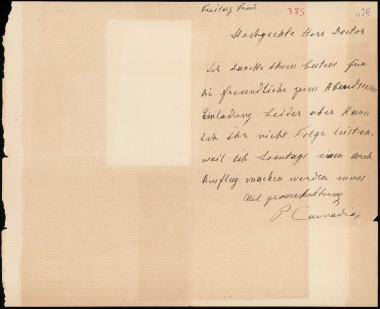 Freitag Früh
385
625
Hochgeehte Herr Doctor
Ich dancke Ihnen bestens für
die freundliche zum Abendessen
Einladung Leider aber kann
ich ihr nicht Folge leisten,
weil ich Sonntags einen arch
Ausflug machen werden muss
Mit
P